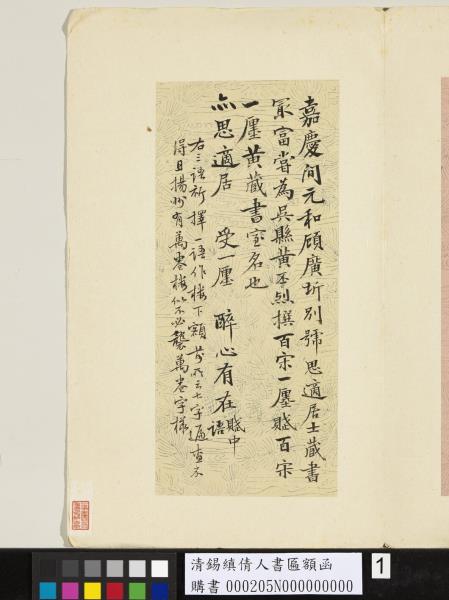 嘉慶間元和顧廣圻別號思適居士藏書
最富嘗為吳縣黃丕烈撰百宋一廛賦百宋
一廛黃藏書室名也
亦思適居 受一廛 醉心有在賦中語
右三語祈擇一語作樓下額 前所云七字遍查不
得且揚州有萬卷樓似不必襲萬卷字樣
清錫縝倩人書匾額函
購書 000205N000000000
1